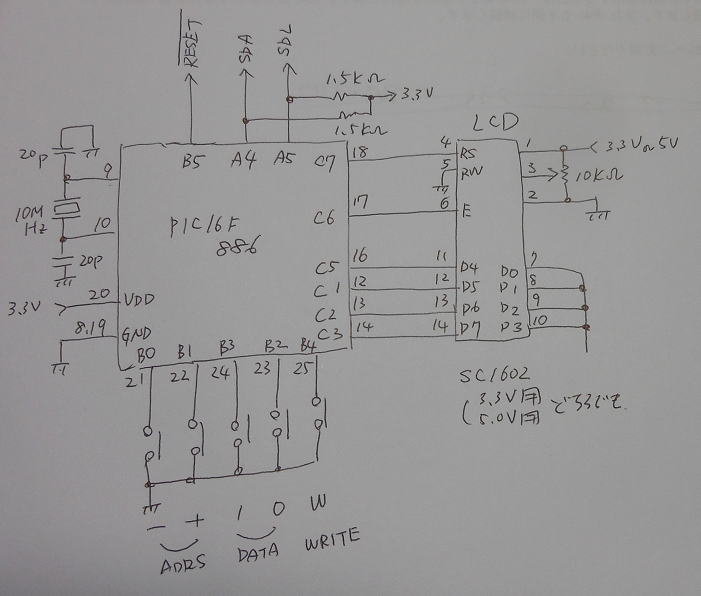 RESET
SDA
SDL
1.5KΩ
3.3V
1.5KΩ
LCD
20p
9
B5 A4 A5 C7 18
4 RS 1
3.3V or 5V
5 RW 3
10KΩ
10M
Hz
10
PIC16F
886
C6 17
6 E 2
20p
C5 16
11 D4 D0 7
3.3V
20 VDD
C1 12
12 D5 D1 8
C2 13
13 D6 D2 9
8.19 GND
C3 14
14 D7 D3 10
B0 B1 B3 B2 B4
21 22 24 23 25
SC1602
(3.3V用
5.0V用 どちらでも
- + 1 0 W
ADRS DATA WRITE